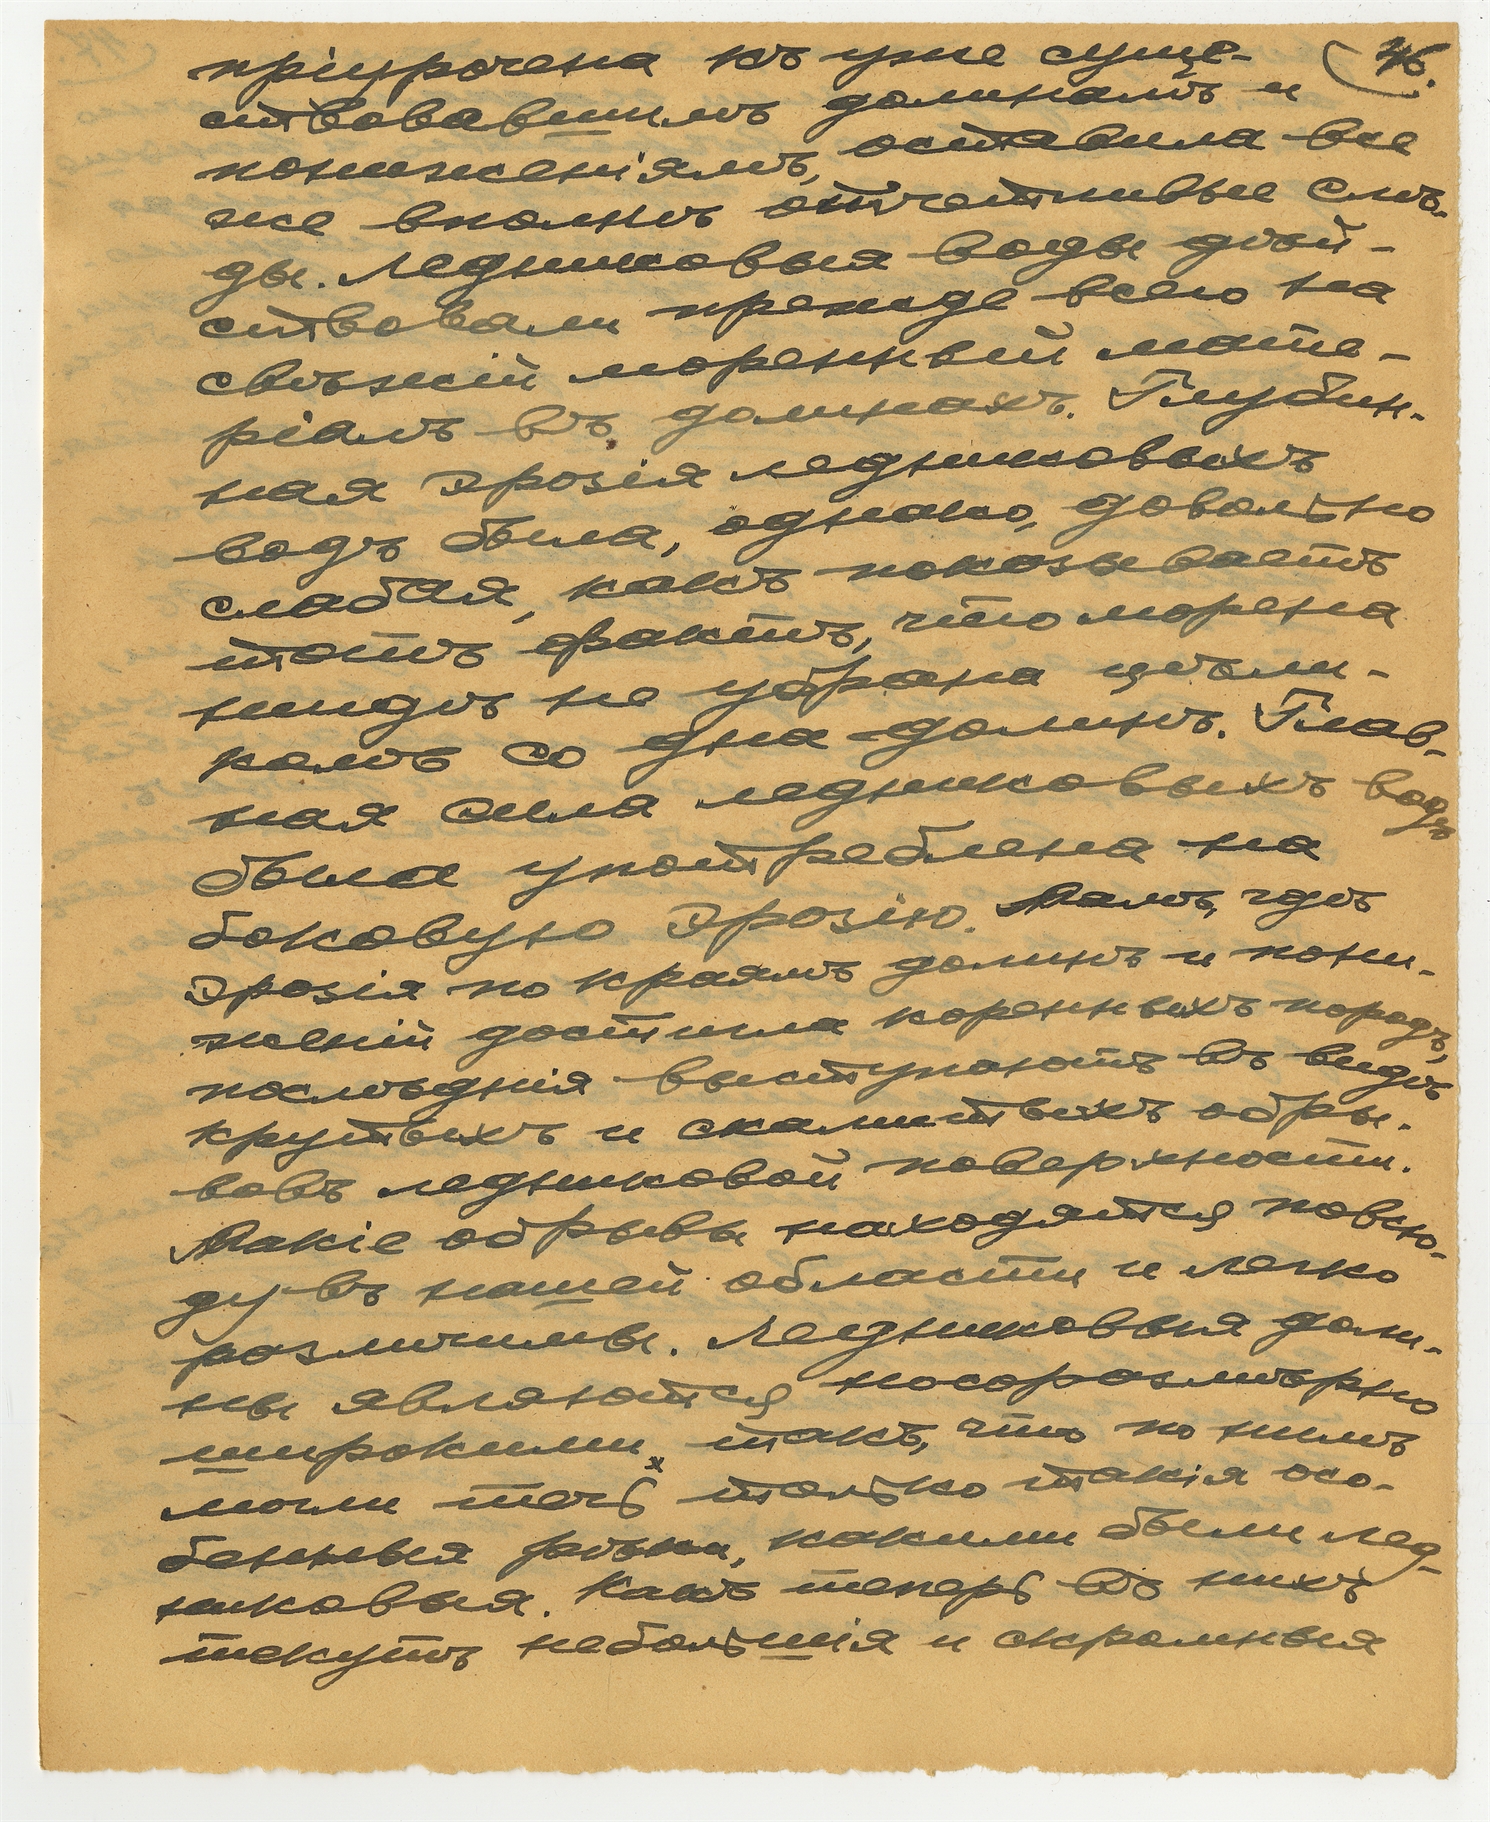 46.
пріурочена къ уже суще-
ствовавшимъ долинамъ и
пониженіямъ, оставила все
же вполнѣ отчетливые слѣ-
ды. Ледниковыя воды дѣй-
ствовали прежде всего на
свѣжій моренный мате-
ріалъ въ долинахъ. Глубин-
ная эрозія ледниковыхъ
водъ была, однако, довольно
слабая, какъ показываетъ
тотъ фактъ, что морена
нигдѣ не убрана цѣли-
комъ со дна долинъ. Глав-
ная сила ледниковыхъ водъ
была употреблена на
боковую эрозію. Тамъ, гдѣ
эрозія по краямъ долинъ и пони-
женій достигла коренныхъ породъ,
послѣднія выступаютъ въ видѣ
крутыхъ и скалистыхъ обры-
вовъ ледниковой поверхности.
Такіе обрывы находятся повсю-
ду въ нашей области и легко
различимы. Ледниковыя доли-
ны являются несоразмѣрно
широкими, такъ, что по нимъ
могли течь только такія осо-
бенныя рѣки, какими были лед-
никовыя. Какъ теперь въ нихъ
текутъ небольшія и скромныя